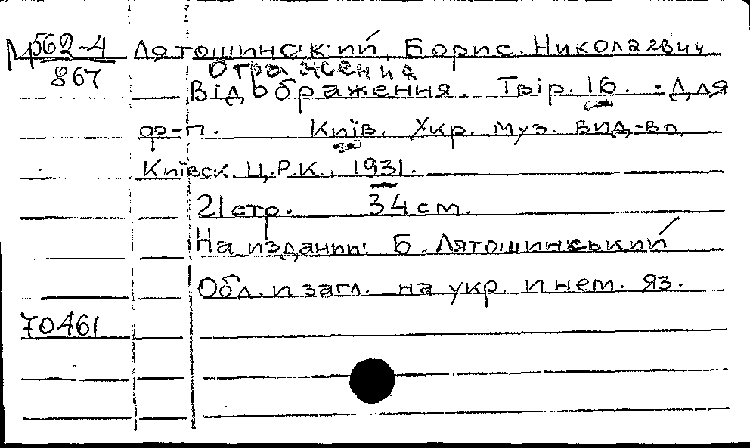 Мр562-4 Лятошинский, Борис Николаевич
867 Отражения
Відображення. Твір. 16. - Для
ф-п. Київ. Укр. муз. вид-во,
Київск. Ц.Р.К., 1931.
21 стр. 34 см.
На издании: Б. Лятошинський
Обл. и загл. на укр. и нем. яз.
70461